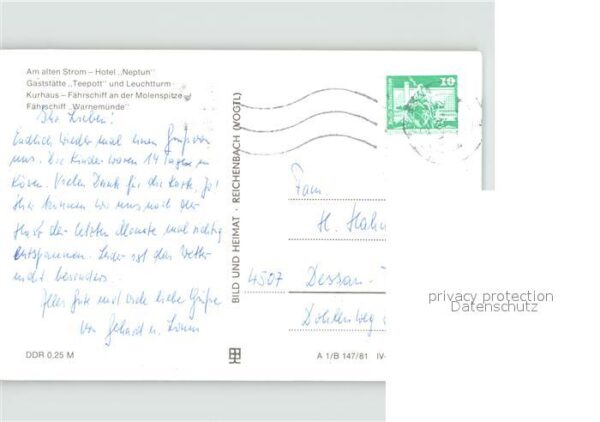 Am alten Strom – Hotel „Neptun"
Gaststätte „Teepott" und Leuchtturm
Kurhaus – Fährschiff an der Molenspitze
Fährschiff „Warnemünde"
Ihr Lieben!
Endlich wieder mal einen Gruß von
uns. Die Kinder waren 14 Tage in
Vielen Dank für die Karte. Ja!
Hier können wir uns nach der
der letzten Monate mal richtig
entspannen. Leider ist das Wetter
nicht besonders.
Alles Gute und viele liebe Grüße
von Gerhard u.
DDR 0,25 M
BILD UND HEIMAT · REICHENBACH (VOGTL)
A 1/B 147/81 IV-
10
Fam
H. Hahn
4507 Dessau-
privacy protection
Datenschutz